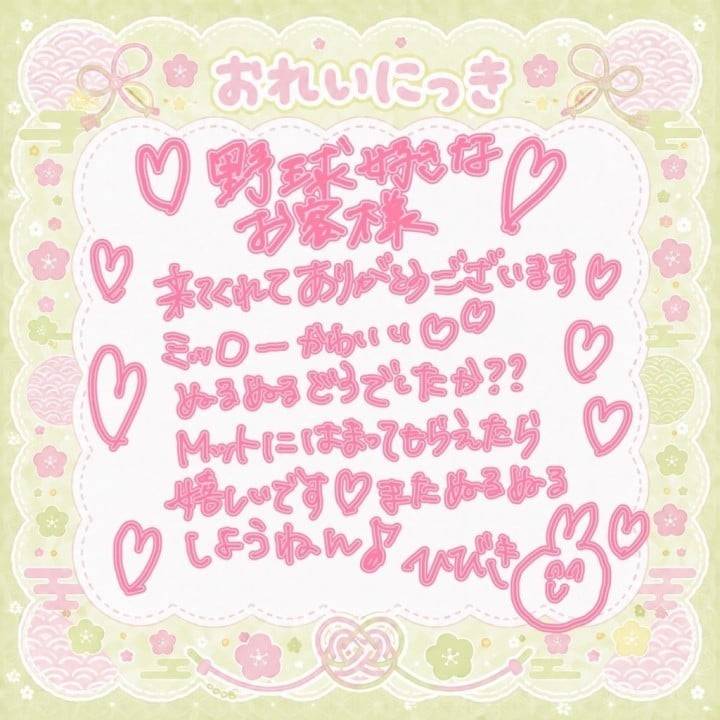 おれいにっき
野球好きな
お客様
来てくれてありがとうございます
ミッロー かわいい
ぬるぬるどうでしたか??
Mットにはまってもらえたら
嬉しいです♡またぬるぬる
しようねん♪
ひびき